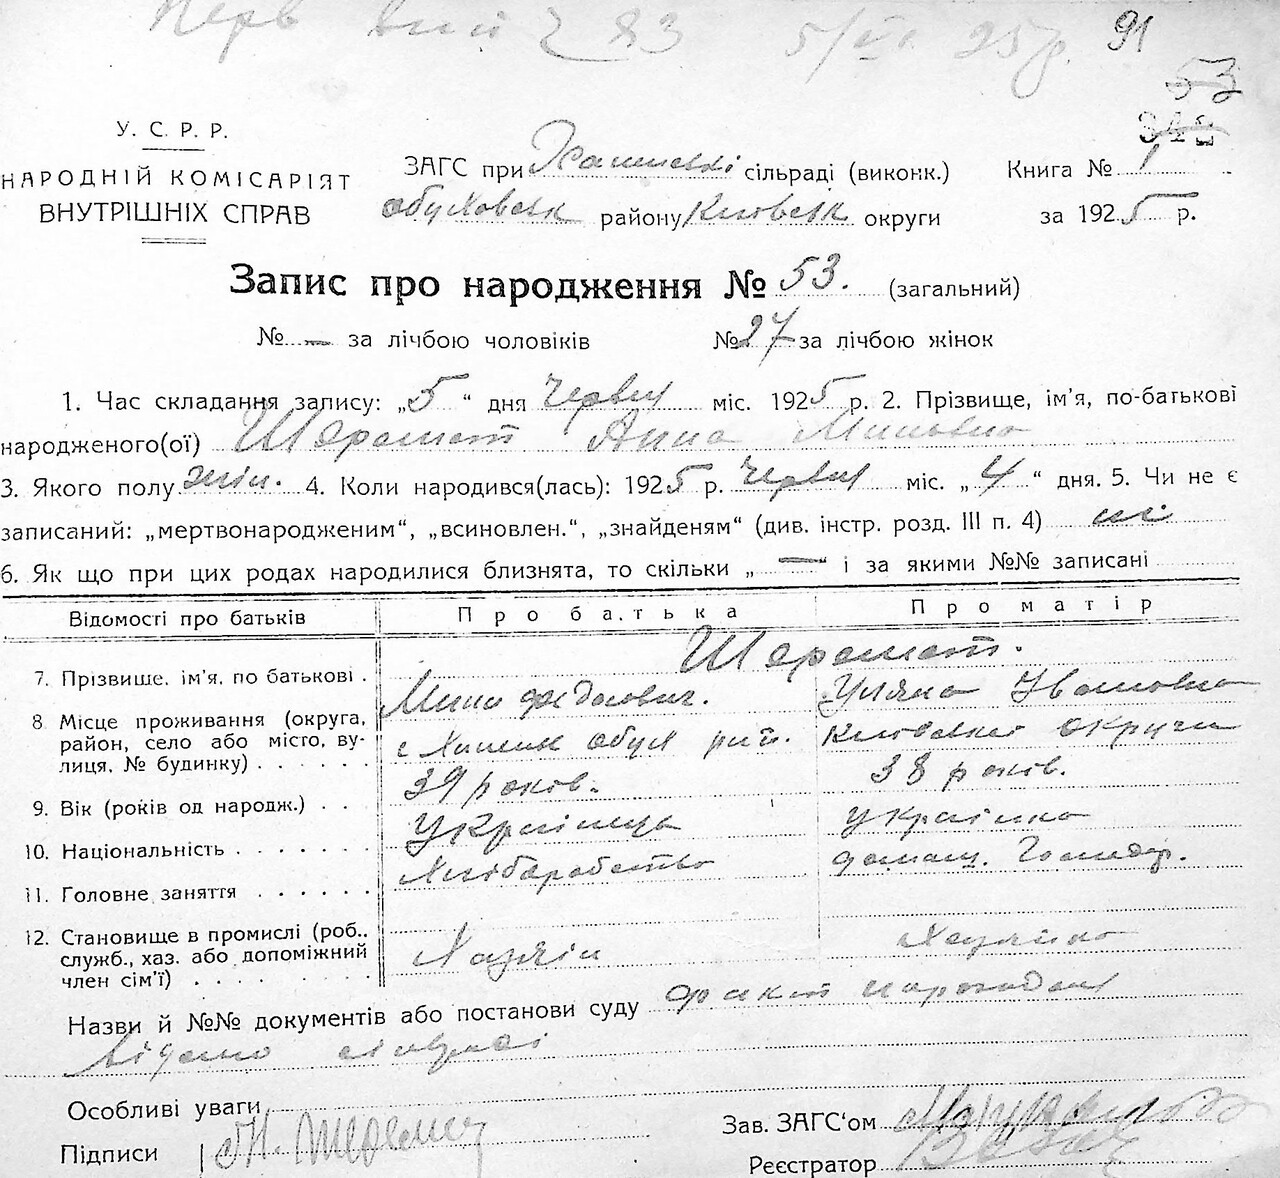 91
53
У. С. Р. Р.
НАРОДНІЙ КОМІСАРІЯТ
ВНУТРІШНІХ СПРАВ
ЗАГС при сільраді (виконк.) Книга № 1
Обуховськ району Київськ округи за 1925 р.
Запис про народження № 53. (загальний)
№ — за лічбою чоловіків № 27 за лічбою жінок
1. Час складання запису: „5“ дня Червня міс. 1925 р. 2. Прізвище, ім'я, по-батькові
народженого(ої) Шеремет Анна Минівна
3. Якого полу жін. 4. Коли народився(лась): 1925 р. Червня міс. „4“ дня. 5. Чи не є
записаний: „мертвонародженим“, „всиновлен.“, „знайденям“ (див. інстр. розд. III п. 4) ні
6. Як що при цих родах народилися близнята, то скільки „—“ і за якими №№ записані
Відомості про батьків Про батька Про матір
Шеремет.
7. Прізвище, ім'я, по батькові . Мина Федосович. Уляна Ивановна
8 Місце проживання (округа, район, село або місто, вулиця, № будинку) . . . . . . с Обух рай. Київської округи
9. Вік (років од народж.) . . . 39 років. 38 років.
10. Національність . . . . . . . Українець Українка
11. Головне заняття . . . . . . Хліборобство домаш. Господар.
12. Становище в промислі (роб., служб., хаз. або допоміжний член сім'ї) . . . . Хазяїн Хазяйка
Назви й №№ документів або постанови суду факт народження
відомо сільраді
Особливі уваги
Зав. ЗАГС'ом
Підписи
Реєстратор